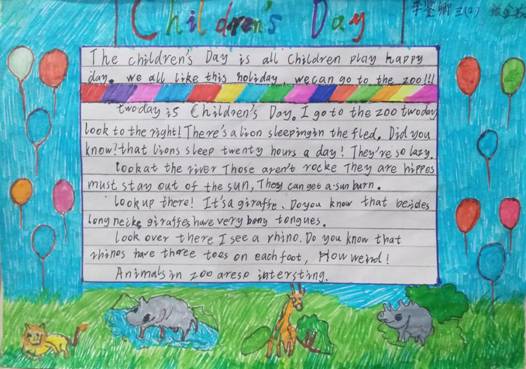 Children's Day
The children's Day is all children play happy
day. we all like this holiday. we can go to the zoo!!!
twoday is Children's Day. I go to the zoo twoday
look to the right! There's a lion sleeping in the fled. Did you
know! that lions sleep twenty hours a day! They're so lazy.
Look at the river Those aren't rocke They are hippes
must stay out of the sun, They can get a sun burn.
Look up there! It's a giraffe. Do you know that besides
long neike giraffes have very bong tongues.
Look over there I see a rhino. Do you know that
rhinos have three toes on each foot, How weird!
Animals in zoo are so intersting.